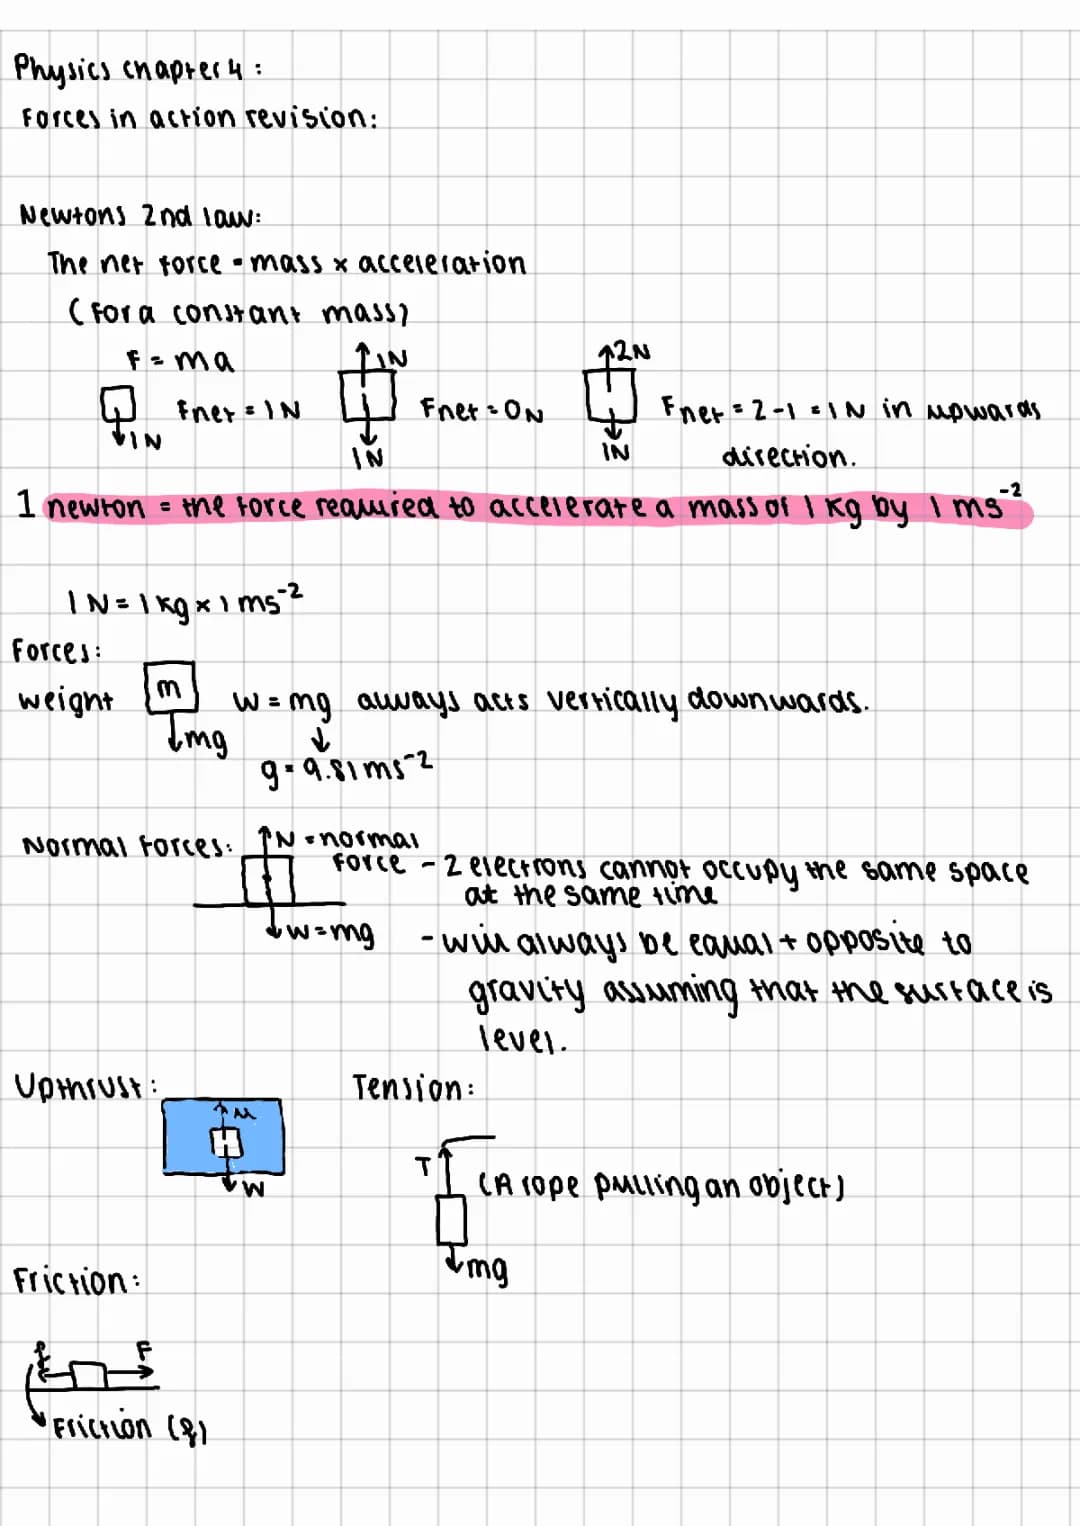 Physics chapter 4:
Forces in action revision:
Newtons 2nd law:
The net force = mass x acceleration
(For a constant mass)
F = ma
1N
Fnet = 1N
1N
1N
Fnet = 0N
2N
1N
Fnet = 2-1 = 1N in upwards
direction.
1 newton = the force required to accelerate a mass of 1 kg by 1 ms⁻²
1N = 1 kg x 1 ms⁻²
Forces:
weight
m
mg
W = mg always acts vertically downwards.
g = 9.81 ms⁻²
Normal Forces:
N = normal
force
W = mg
- 2 electrons cannot occupy the same space
at the same time
- will always be equal + opposite to
gravity assuming that the surface is
level.
Upthrust:
u
W
Tension:
T
(A rope pulling an object)
mg
Friction:
f
F
Friction (f)